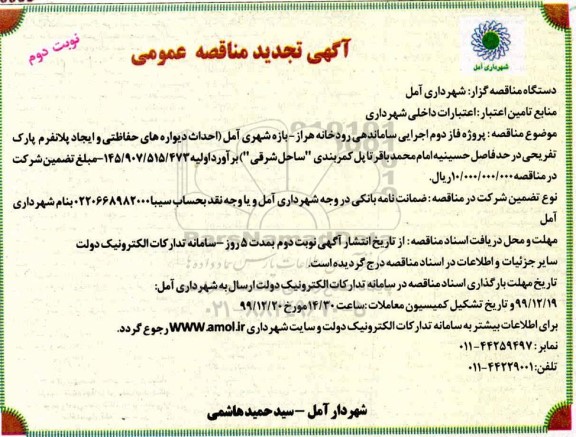 نوبت دوم
آگهی تجدید مناقصه عمومی
شهرداری آمل
دستگاه مناقصه گزار: شهرداری آمل
منابع تامین اعتبار: اعتبارات داخلی شهرداری
موضوع مناقصه: پروژه فاز دوم اجرایی ساماندهی رودخانه هراز - بازه شهری آمل (احداث دیواره های حفاظتی و ایجاد پلاتفرم پارک
تفریحی در حدفاصل حسینیه امام محمدباقر تا پل کمربندی "ساحل شرقی") برآورد اولیه ۱۴۵/۹۰۷/۵۱۵/۴۷۳-مبلغ تضمین شرکت
در مناقصه ۱۰/۰۰۰/۰۰۰/۰۰۰ریال.
نوع تضمین شرکت در مناقصه: ضمانت نامه بانکی در وجه شهرداری آمل و یا وجه نقد بحساب سیبا ۰۲۲۰۶۶۸۹۸۲۰۰۰ بنام شهرداری
آمل
مهلت و محل دریافت اسناد مناقصه: از تاریخ انتشار آگهی نوبت دوم بمدت ۵ روز - سامانه تدارکات الکترونیک دولت
سایر جزئیات و اطلاعات در اسناد مناقصه درج گردیده است.
تاریخ مهلت بارگذاری اسناد مناقصه در سامانه تدارکات الکترونیک دولت ارسال به شهرداری آمل:
۹۹/۱۲/۱۹ و تاریخ تشکیل کمیسیون معاملات: ساعت ۱۴/۳۰ مورخ ۹۹/۱۲/۲۰
برای اطلاعات بیشتر به سامانه تدارکات الکترونیک دولت و سایت شهرداری WWW.amol.ir رجوع گردد.
نمابر: ۴۴۲۵۹۴۹۷-۰۱۱
تلفن: ۴۴۲۲۹۰۰۱-۰۱۱
شهردار آمل - سید حمید هاشمی